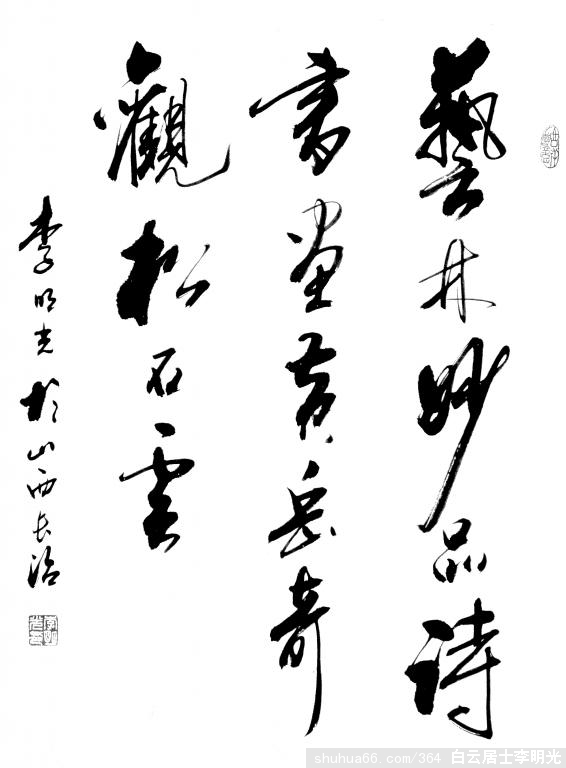 藝林妙品詩
書畫黄岳奇
觀松石雲
李明光於山西長治
shuhua66.com/364 白云居士李明光